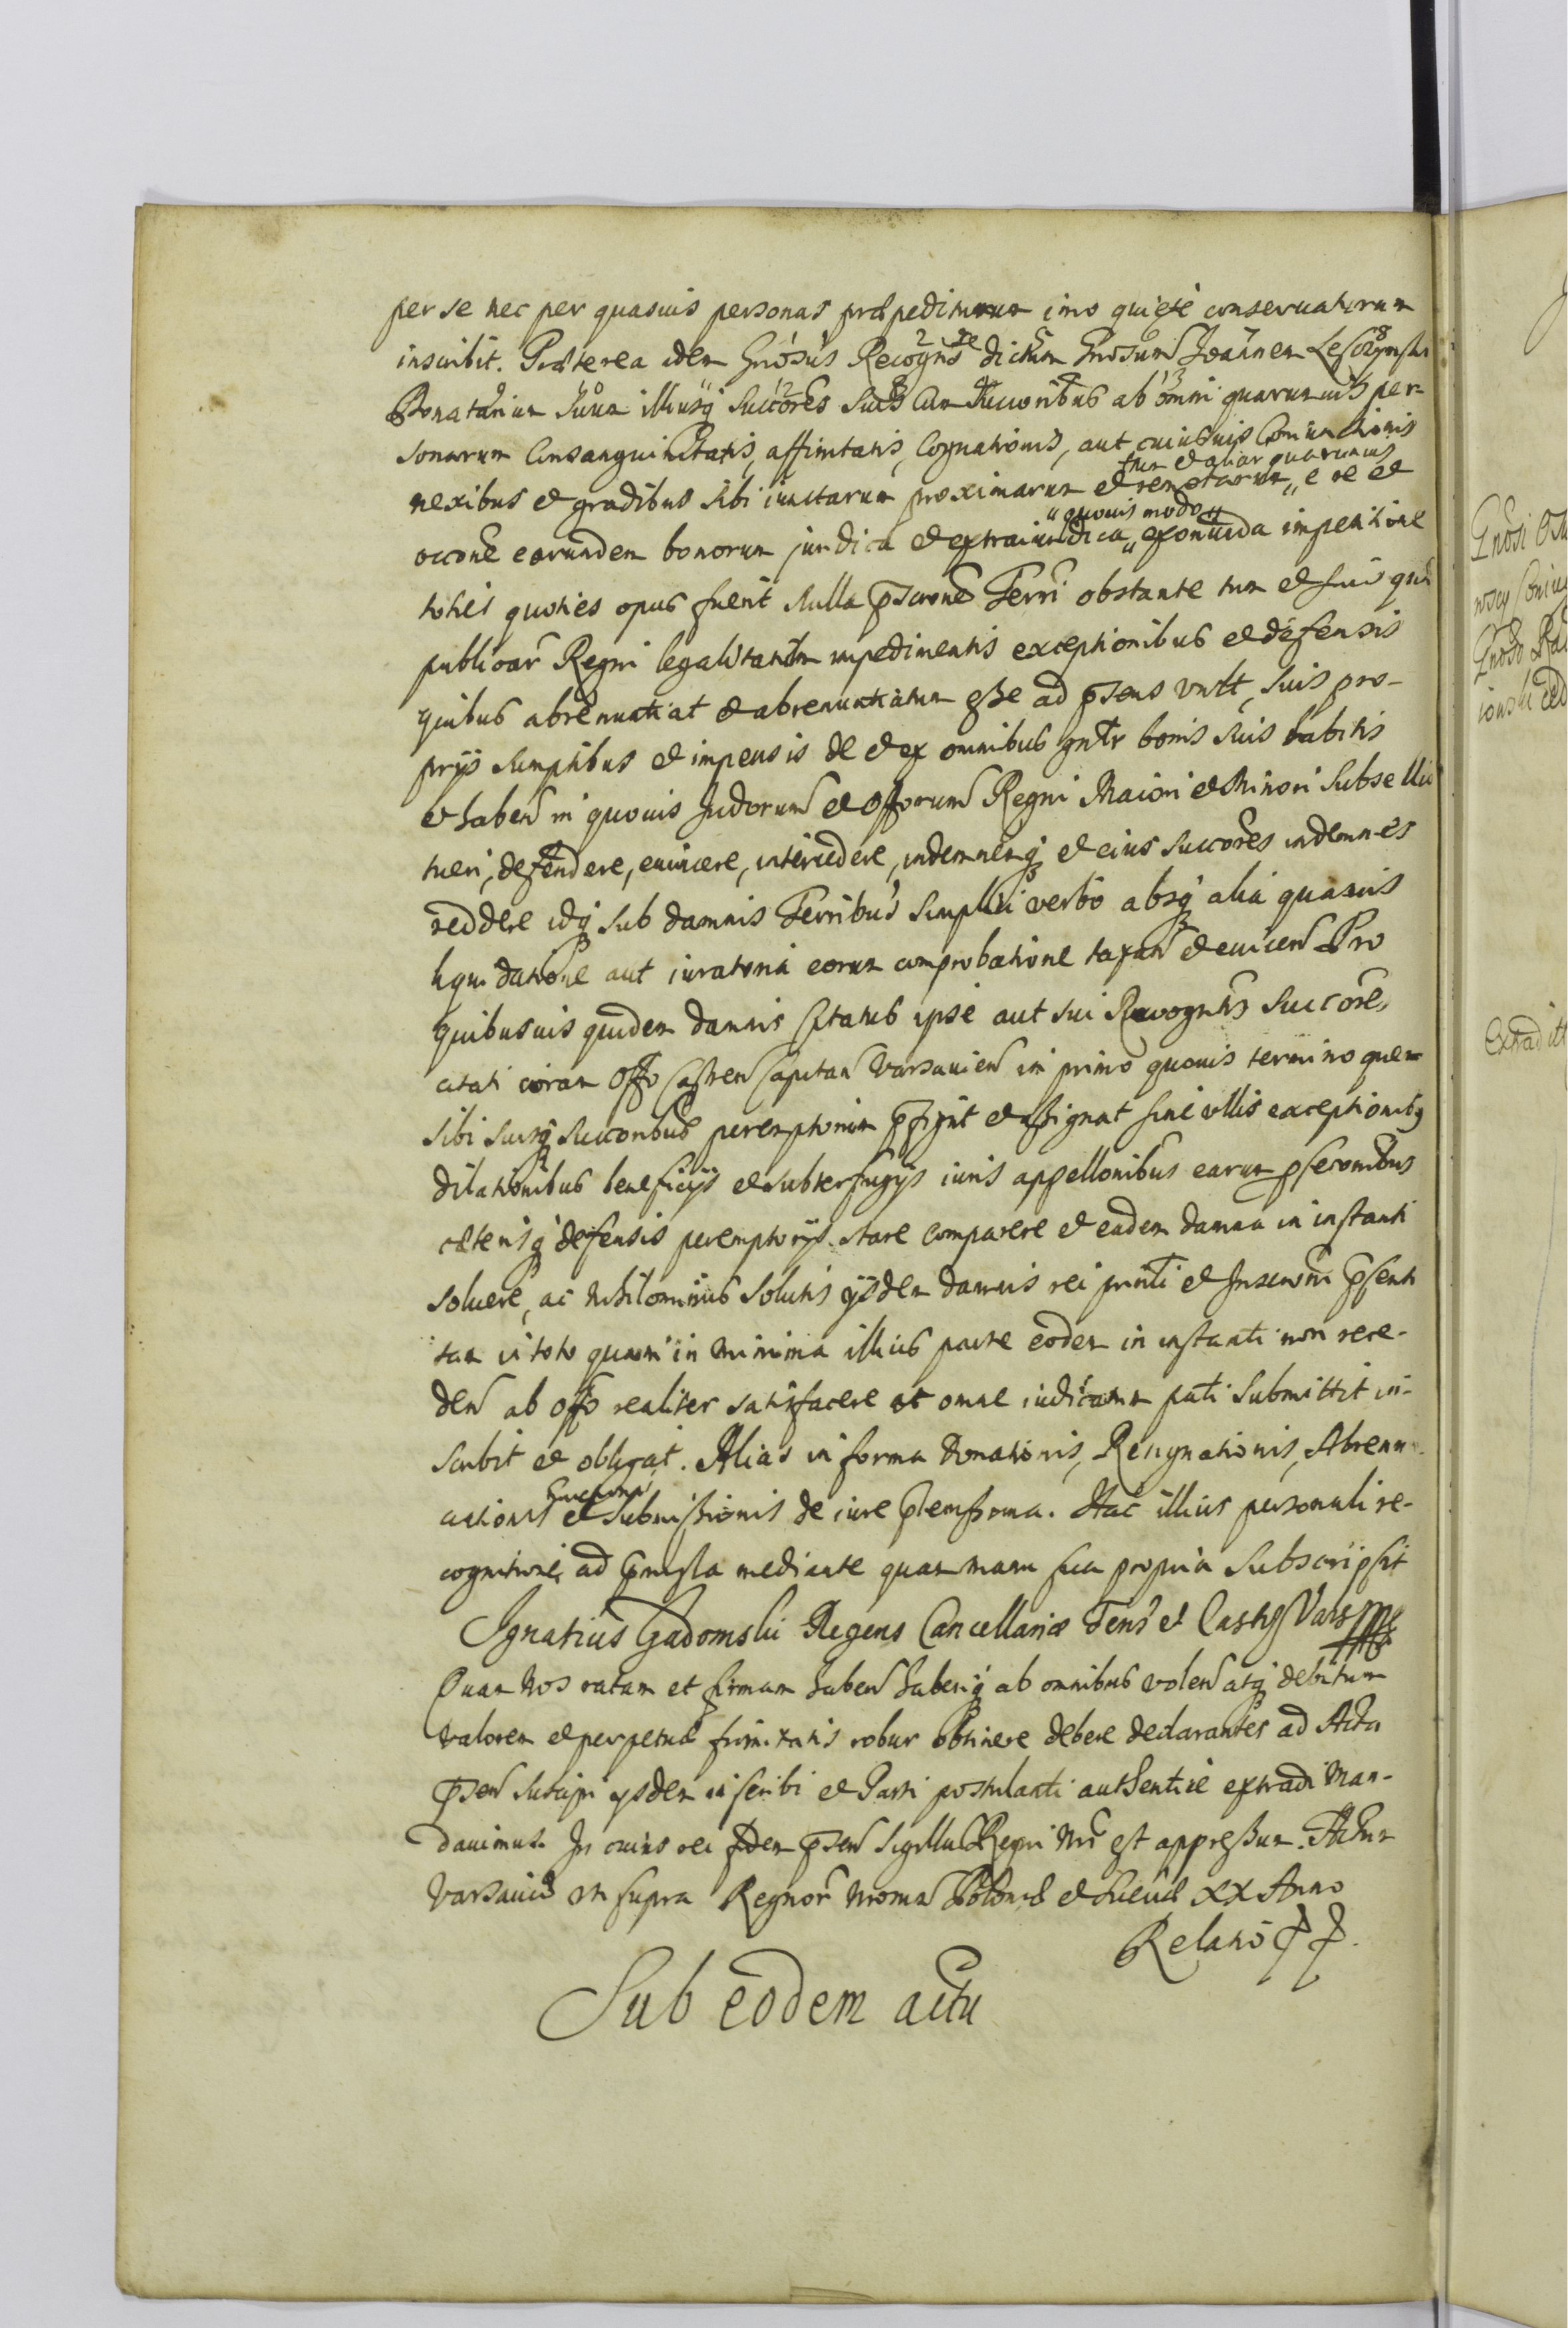 per se nec per quasuis personas præpediturum imo quiete conseruaturum
inscribit. Præterea idem Gnosus Recogns dictum Gnosum Joannem Leszczynski
Donatarium suum illiusq succores suis cum succoribus ab omni quarumuis per-
sonarum Consanguinitatis, affinitatis, Cognationis, aut cuiusuis Coniunctionis
nexibus et gradibus sibi iunctarum proximarum et remotarum „ e re et
tum et aliar quarumuis
occone eorundem bonorum juridica et extraiuridica „
„ quouis modo „
impetitione
toties quoties opus fuerit nulla pscrone Terri obstante tum et
publicar Regni legalitatum impedimentis exceptionibus et defensis
quibus abrenuntiat et abrenuntiatum esse ad psens vult, suis pro-
prijs sumptibus et impensis de et ex omnibus gnlr bonis suis habitis
et haben in quouis Judiorum et Offorum Regni Maiori et Minori Subsellio
tueri, defendere, euincere, intercedere, indemnemq et eius succores indemnes
reddere idq sub damnis Terribus simplici verbo absq alia quauis
liquidatione aut iuratoria eorum comprobatione taxan et euicen Pro
quibusuis quidem damnis citatus ipse aut sui Recogntis Succores
citati coram Offo Castren Capitan Varsauien in primo quouis termino quem
sibi suisq succoribus peremptorium pfigit et assignat sine vllis exceptionibq
dilationibus beneficijs et subterfugijs iuris appellonibus earum psecnonibus
cæterisq defensis peremptorijs stare comparere et eadem damna in instanti
soluere, ac nihilominus solutis ijsdem damnis rei prnli et Inscrnoni psenti
tam in toto quam in minima illius parte eodem in instanti non rece-
den ab offo realiter satisfacere et omne iudicatum pati submittit in-
scribit et obligat. Alias in forma Donationis, Resignationis, Abrenun-
ciationis et Submissionis de iure plenissima. Hac illius personali re-
cognitione ad pmissa mediante quam manu sua propria Subscripsit
Ignatius Gadomski Regens Cancellariæ Tens et Castrs Vars mp
Quam Nos ratam et firmam haben haberiq ab omnibus volen atq debitum
valorem et perpetuæ firmitatis robur obtinere debere declarantes ad Acta
psen suscipi ijsdem inscribi et Parti postulanti authentice extradi Man-
dauimus. In cuius rei fidem psen Sigillu Regni Nri est appressum. Actum
Varsauiæ ut supra Regnor Nrorum Poloniæ et Sueciæ XX Anno
Relatio
Sub eodem actu
Gnosi
Extradit